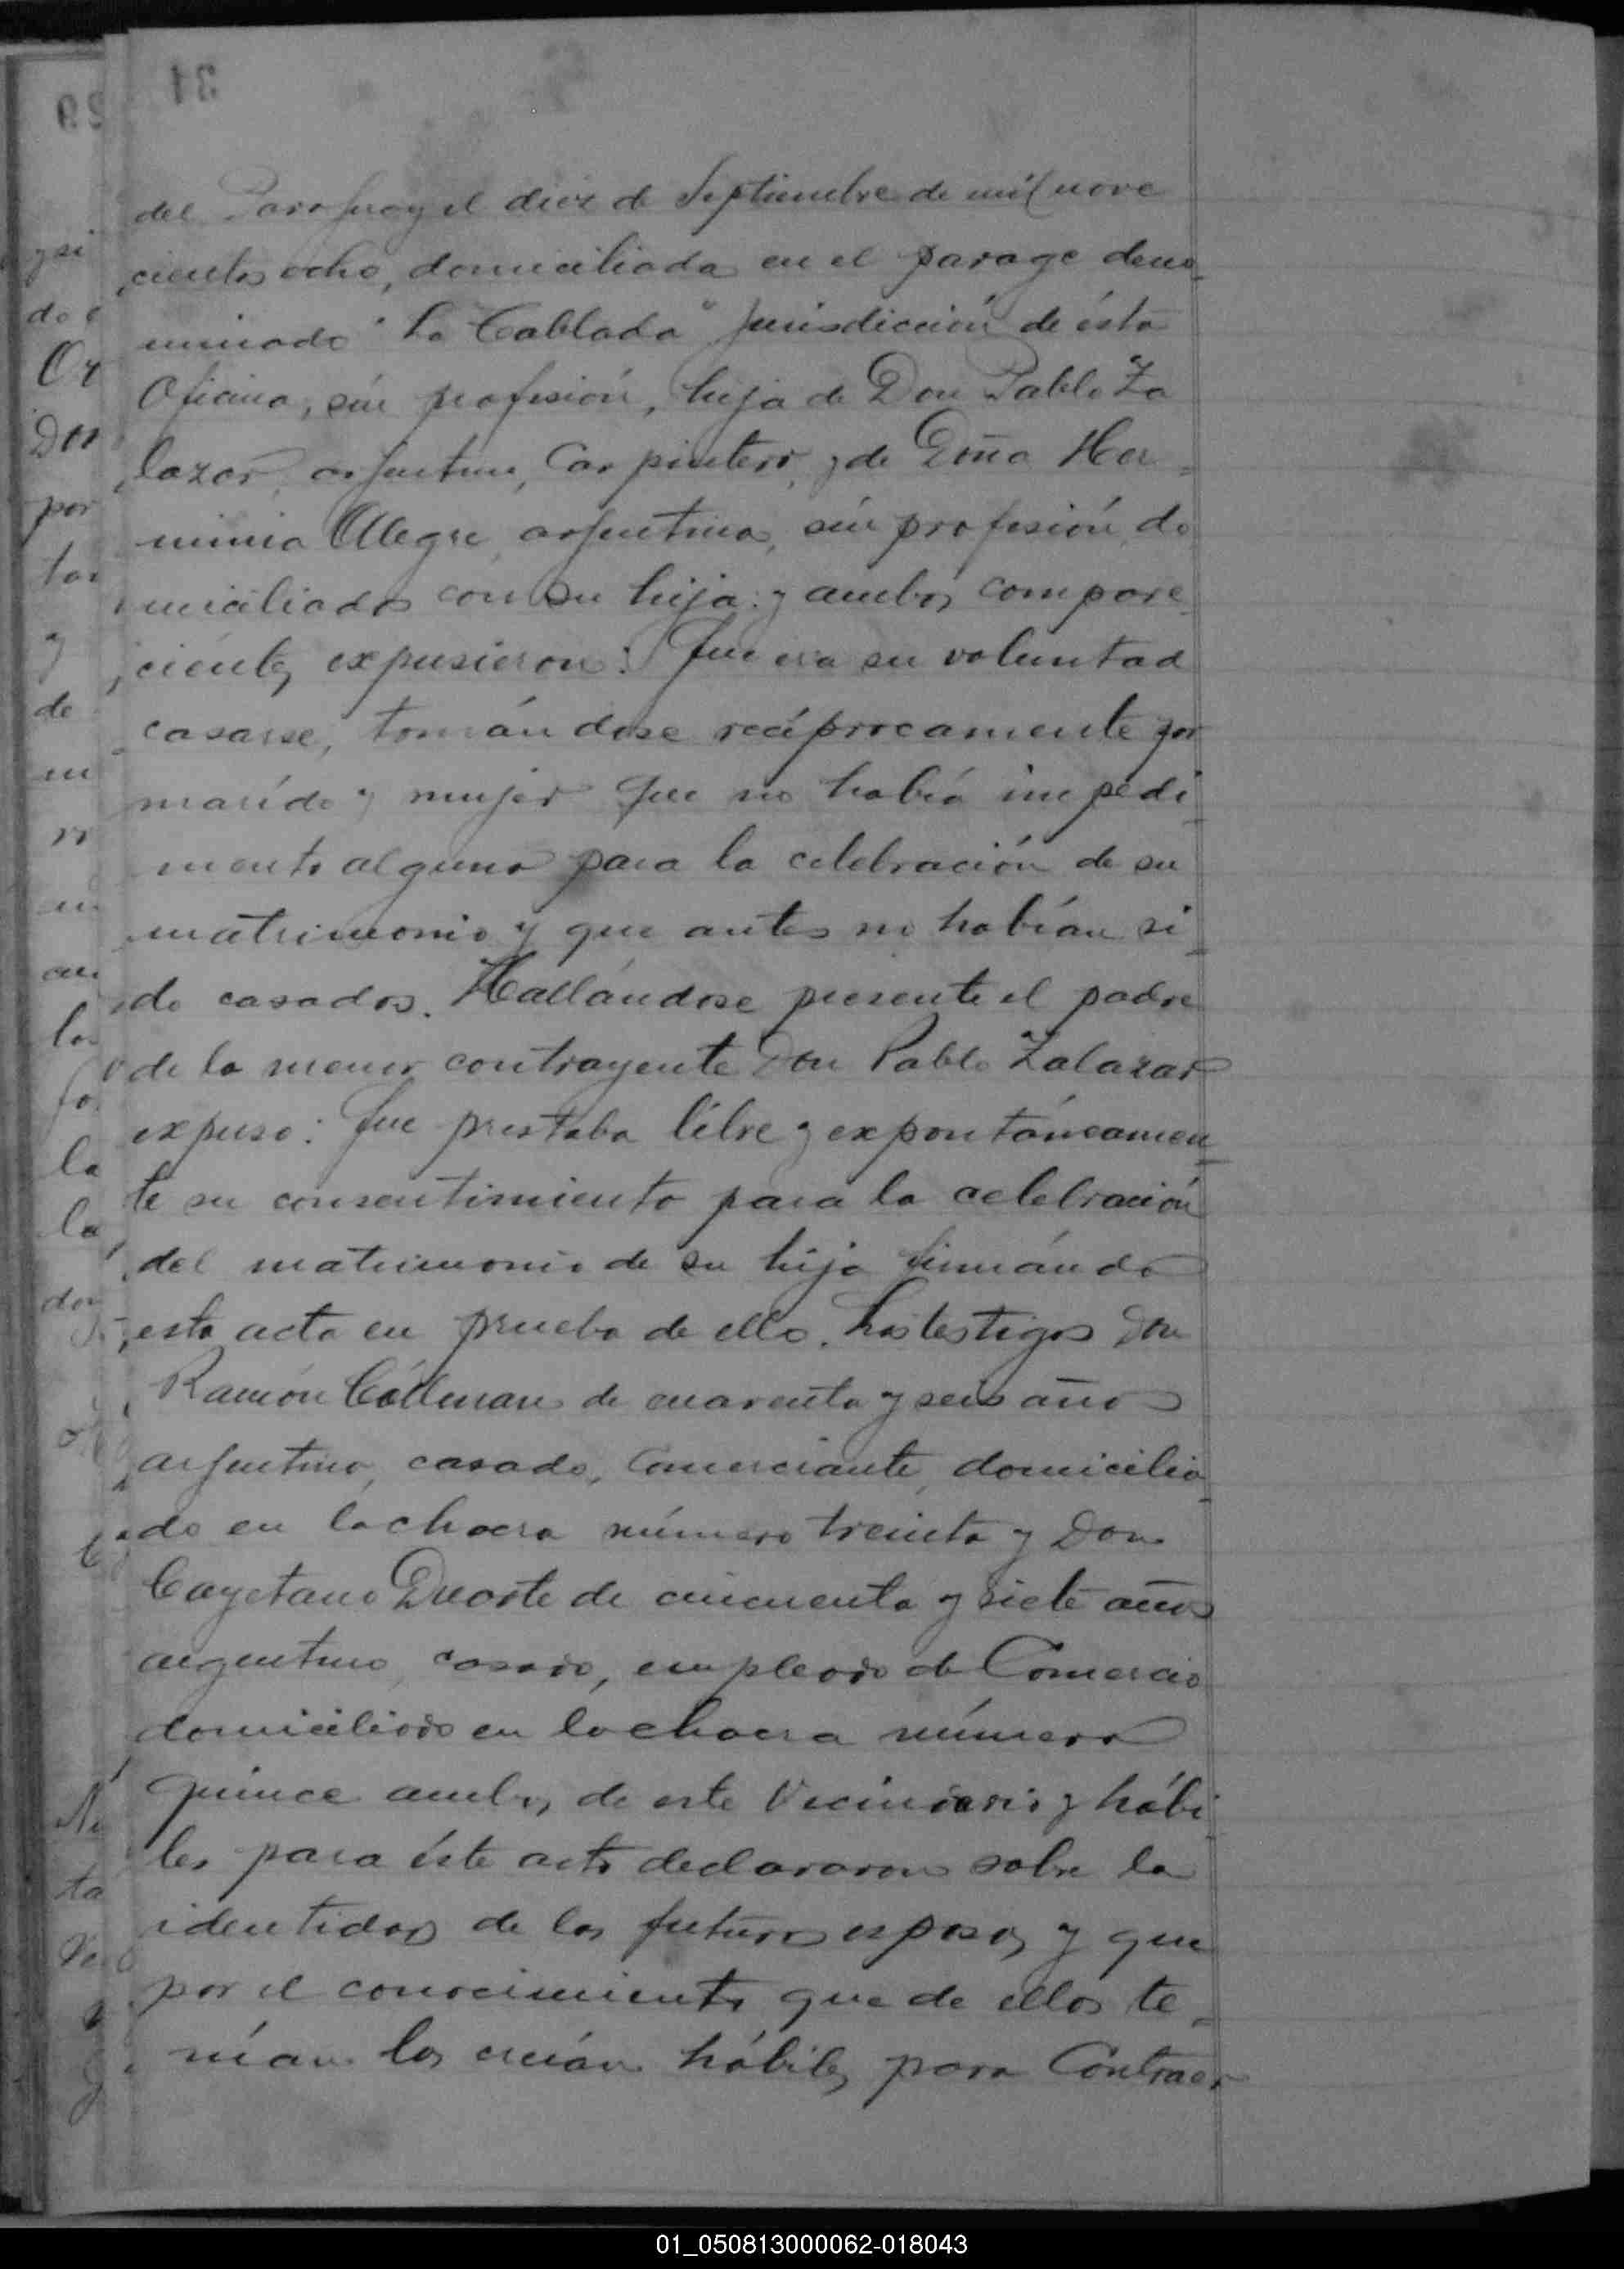 31
del Paraguay el diez de Septiembre de mil nove
cientos ocho, domiciliada en el parage deno_
minado "La Tablada" jurisdicción de ésta
Oficina, sin profesión, hija de Don Pablo Za
lazar, argentino, Carpintero, y de Doña Her_
minia Alegre, argentina, sin profesión, do
miciliados con su hija: y ambos compare_
cientes expusieron: Que era su voluntad
casarse, tomándose recíprocamente por
marido y mujer Que no había impedi_
mento alguno para la celebración de su
matrimonio y que antes no habían si_
do casados. Hallándose presente el padre
de la menor contrayente Don Pablo Zalazar
expuso: Que prestaba libre y expontáneamen_
te su consentimiento para la celebración
del matrimonio de su hija firmándo
esta acta en prueba de ello. Los testigos Don
Ramón de cuarenta y seis años
argentino, casado, Comerciante, domicilia_
do en la chacra número treinta y Don
Cayetano Duarte de cincuenta y siete años
argentino, casado, empleado de Comercio
domiciliado en la chacra número
quince ambos de este Vecindario y hábi_
les para éste acto declararon sobre la
identidad de los futuros esposos y que
por el conocimiento que de ellos te_
nían los creían hábiles para Contraer
01_050813000062-018043